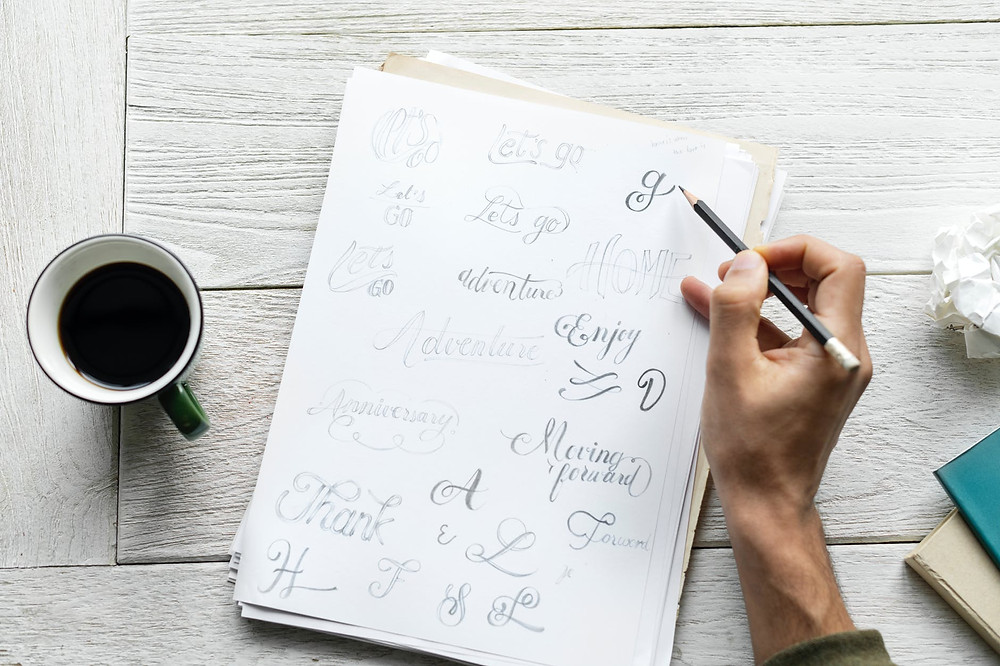 Let's
GO
Let's go
g
Let's
GO
Lets go
Let's
GO
adventure
HOME
Adventure
Enjoy
D
Anniversary
Moving
forward
Thank
A
Forward
E
L
H
F
S
L